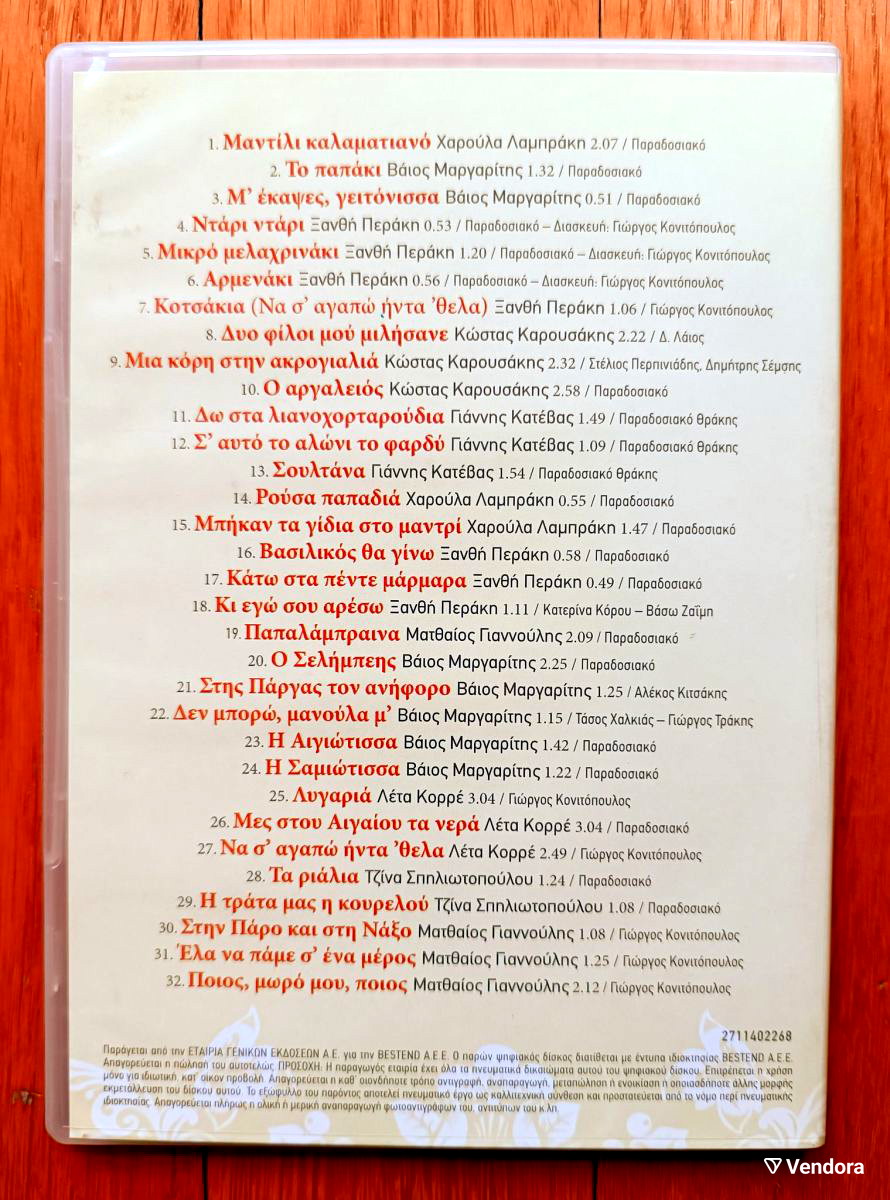 1. Μαντίλι καλαματιανό Χαρούλα Λαμπράκη 2.07 / Παραδοσιακό
2. Το παπάκι Βάιος Μαργαρίτης 1.32 / Παραδοσιακό
3. Μ’ έκαψες, γειτόνισσα Βάιος Μαργαρίτης 0.51 / Παραδοσιακό
4. Ντάρι ντάρι Ξανθή Περάκη 0.53 / Παραδοσιακό – Διασκευή: Γιώργος Κονιτόπουλος
5. Μικρό μελαχρινάκι Ξανθή Περάκη 1.20 / Παραδοσιακό – Διασκευή: Γιώργος Κονιτόπουλος
6. Αρμενάκι Ξανθή Περάκη 0.56 / Παραδοσιακό – Διασκευή: Γιώργος Κονιτόπουλος
7. Κοτσάκια (Να σ’ αγαπώ ήντα ’θελα) Ξανθή Περάκη 1.06 / Γιώργος Κονιτόπουλος
8. Δυο φίλοι μού μιλήσανε Κώστας Καρουσάκης 2.22 / Δ. Λάιος
9. Μια κόρη στην ακρογιαλιά Κώστας Καρουσάκης 2.32 / Στέλιος Περπινιάδης, Δημήτρης Σέμσης
10. Ο αργαλειός Κώστας Καρουσάκης 2.58 / Παραδοσιακό
11. Δω στα λιανοχορταρούδια Γιάννης Κατέβας 1.49 / Παραδοσιακό Θράκης
12. Σ’ αυτό το αλώνι το φαρδύ Γιάννης Κατέβας 1.09 / Παραδοσιακό Θράκης
13. Σουλτάνα Γιάννης Κατέβας 1.54 / Παραδοσιακό Θράκης
14. Ρούσα παπαδιά Χαρούλα Λαμπράκη 0.55 / Παραδοσιακό
15. Μπήκαν τα γίδια στο μαντρί Χαρούλα Λαμπράκη 1.47 / Παραδοσιακό
16. Βασιλικός θα γίνω Ξανθή Περάκη 0.58 / Παραδοσιακό
17. Κάτω στα πέντε μάρμαρα Ξανθή Περάκη 0.49 / Παραδοσιακό
18. Κι εγώ σου αρέσω Ξανθή Περάκη 1.11 / Κατερίνα Κόρου – Βάσω Ζαΐμη
19. Παπαλάμπραινα Ματθαίος Γιαννούλης 2.09 / Παραδοσιακό
20. Ο Σελήμπεης Βάιος Μαργαρίτης 2.25 / Παραδοσιακό
21. Στης Πάργας τον ανήφορο Βάιος Μαργαρίτης 1.25 / Αλέκος Κιτσάκης
22. Δεν μπορώ, μανούλα μ’ Βάιος Μαργαρίτης 1.15 / Τάσος Χαλκιάς – Γιώργος Τράκης
23. Η Αιγιώτισσα Βάιος Μαργαρίτης 1.42 / Παραδοσιακό
24. Η Σαμιώτισσα Βάιος Μαργαρίτης 1.22 / Παραδοσιακό
25. Λυγαριά Λέτα Κορρέ 3.04 / Γιώργος Κονιτόπουλος
26. Μες στου Αιγαίου τα νερά Λέτα Κορρέ 3.04 / Παραδοσιακό
27. Να σ’ αγαπώ ήντα ’θελα Λέτα Κορρέ 2.49 / Γιώργος Κονιτόπουλος
28. Τα ριάλια Τζίνα Σπηλιωτοπούλου 1.24 / Παραδοσιακό
29. Η τράτα μας η κουρελού Τζίνα Σπηλιωτοπούλου 1.08 / Παραδοσιακό
30. Στην Πάρο και στη Νάξο Ματθαίος Γιαννούλης 1.08 / Γιώργος Κονιτόπουλος
31. Έλα να πάμε σ’ ένα μέρος Ματθαίος Γιαννούλης 1.25 / Γιώργος Κονιτόπουλος
32. Ποιος, μωρό μου, ποιος Ματθαίος Γιαννούλης 2.12 / Γιώργος Κονιτόπουλος
2711402268
Παράγεται από την ΕΤΑΙΡΙΑ ΓΕΝΙΚΩΝ ΕΚΔΟΣΕΩΝ Α.Ε. για την BESTEND Α.Ε.Ε. Ο παρών ψηφιακός δίσκος διατίθεται με έντυπα ιδιοκτησίας BESTEND Α.Ε.Ε.
Απαγορεύεται η πώλησή του αυτοτελώς. ΠΡΟΣΟΧΗ: Η παραγωγός εταιρία έχει όλα τα πνευματικά δικαιώματα αυτού του ψηφιακού δίσκου. Επιτρέπεται η χρήση
μόνο για ιδιωτική, κατ’ οίκον προβολή. Απαγορεύεται η καθ’ οιονδήποτε τρόπο αντιγραφή, αναπαραγωγή, μεταπώληση ή ενοικίαση ή οποιασδήποτε άλλης μορφής
εκμετάλλευση του δίσκου αυτού. Το εξώφυλλο του παρόντος αποτελεί πνευματικό έργο ως καλλιτεχνική σύνθεση και προστατεύεται από το νόμο περί πνευματικής
ιδιοκτησίας. Απαγορεύεται πλήρως η ολική ή μερική αναπαραγωγή φωτοαντιγράφου του, αντιτύπων του κ.λπ.
Vendora